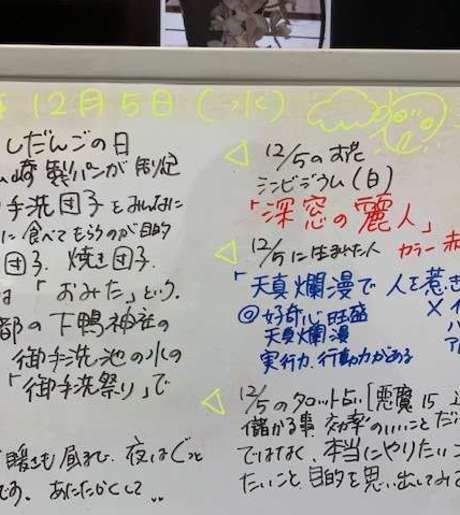 12月5日(水)
しだんごの日
崎製パンが制定
手洗団子をみんなに
に食べてもらうのが目的
団子、焼き団子、
は「おみた」という。
都の下鴨神社の
御手洗池の水の
「御手洗祭り」で
暖さも昼まで、夜はぐっと
です。あたたかくして..
12/5のお花
シンビジウム(白)
「深窓の麗人」
12/5に生まれた人 カラー 赤
「天真爛漫で人を惹き
◎好奇心旺盛
天真爛漫
実行力、行動力がある
12/5のタロット占い[悪魔15
儲かる事、効率のいいことだ
ではなく、本当にやりたいこ
たいこと、目的を思い出してみて